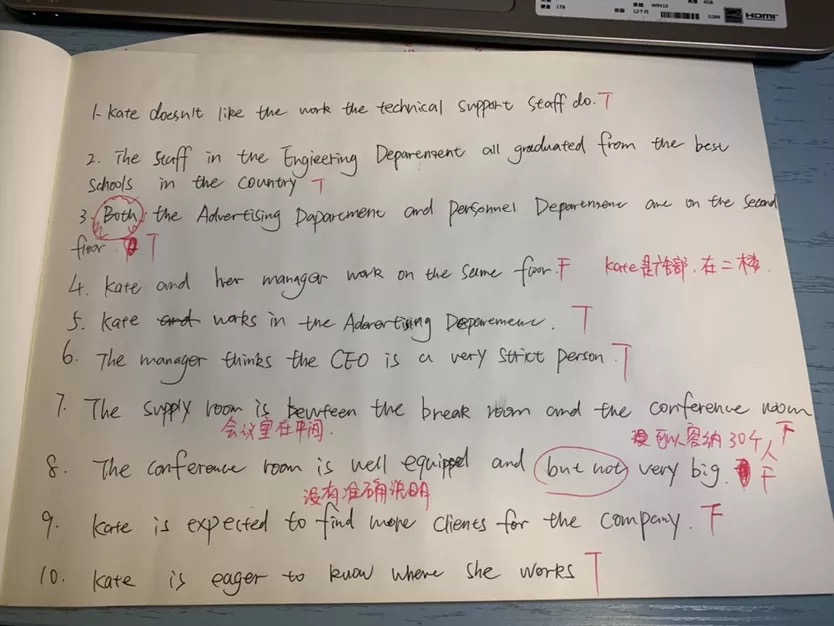 WIN10
4GB
1TB
12个月
0288
HDMI
1. Kate doesn't like the work the technical support staff do. T
2. The staff in the Engieering Deparenment all graduated from the best
schools in the country T
3. Both the Advertising Dapartment and personnel Department are on the second
floor. T
4. Kate and her manager work on the same floor. F Kate是广告部,在二楼.
5. Kate and works in the Advertising Department. T
6. The manager thinks the CEO is a very strict person. T
7. The supply room is bewteen the break room and the conference room
会议室在中间. 可以容纳30个人 F
8. The conference room is well equipped and but not very big. F
没有准确说明
9. Kate is expected to find more clients for the company. F
10. Kate is eager to know where she works T